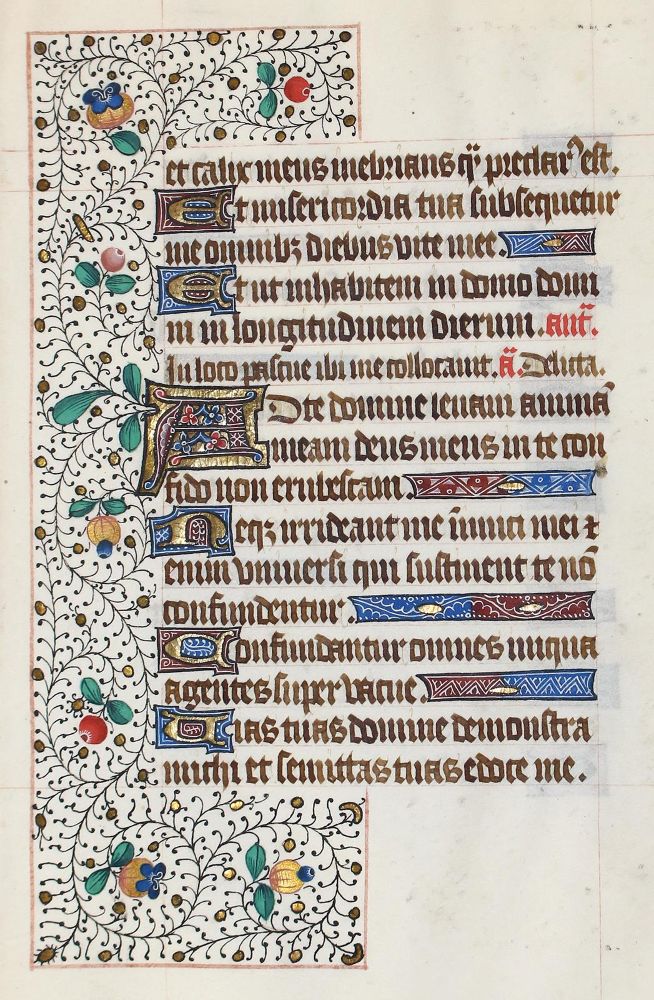 et calix meus inebrians q̄ꝫ preclarꝰ est.
Et misericordia tua subsequetur
me omnibꝫ diebus vite mee.
Et ut inhabitem in domo domi
ni in longitudinem dierum. ant̄.
In loco pascue ibi me collocauit. ā. Delicta.
ADte domine leuaui animā
meam deus meus in te con
fido non erubescam.
Neqꝫ irrideant me īimici mei ⁊
enim vniuersi qui sustinent te nō
confundentur.
Confundantur omnes iniqua
agentes super vacue.
Uias tuas domine demonstra
michi et semittas tuas edoce me.